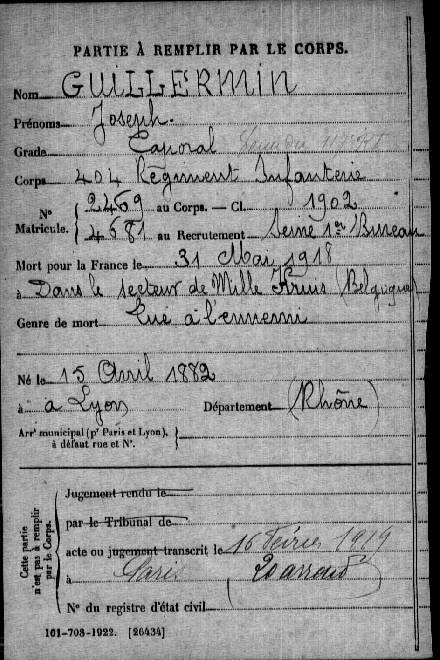 PARTIE À REMPLIR PAR LE CORPS.
Nom GUILLERMIN
Prénoms Joseph.
Grade Caporal
Corps 404 Régiment Infanterie
N° Matricule. 2469 au Corps. — Cl. 1902
4681 au Recrutement Seine 1er Bureau
Mort pour la France le 31 Mai 1918
à Dans le secteur de Mille Kruis (Belgique)
Genre de mort Tué à l'ennemi
Né le 15 Avril 1882
à a Lyon Département (Rhône)
Arrt municipal (pr Paris et Lyon), à défaut rue et N°.
Cette partie n'est pas à remplir par le Corps.
Jugement rendu le
par le Tribunal de
acte ou jugement transcrit le 15 Février 1919
à Paris 20 arrondt
N° du registre d'état civil
101-708-1922. [26434]